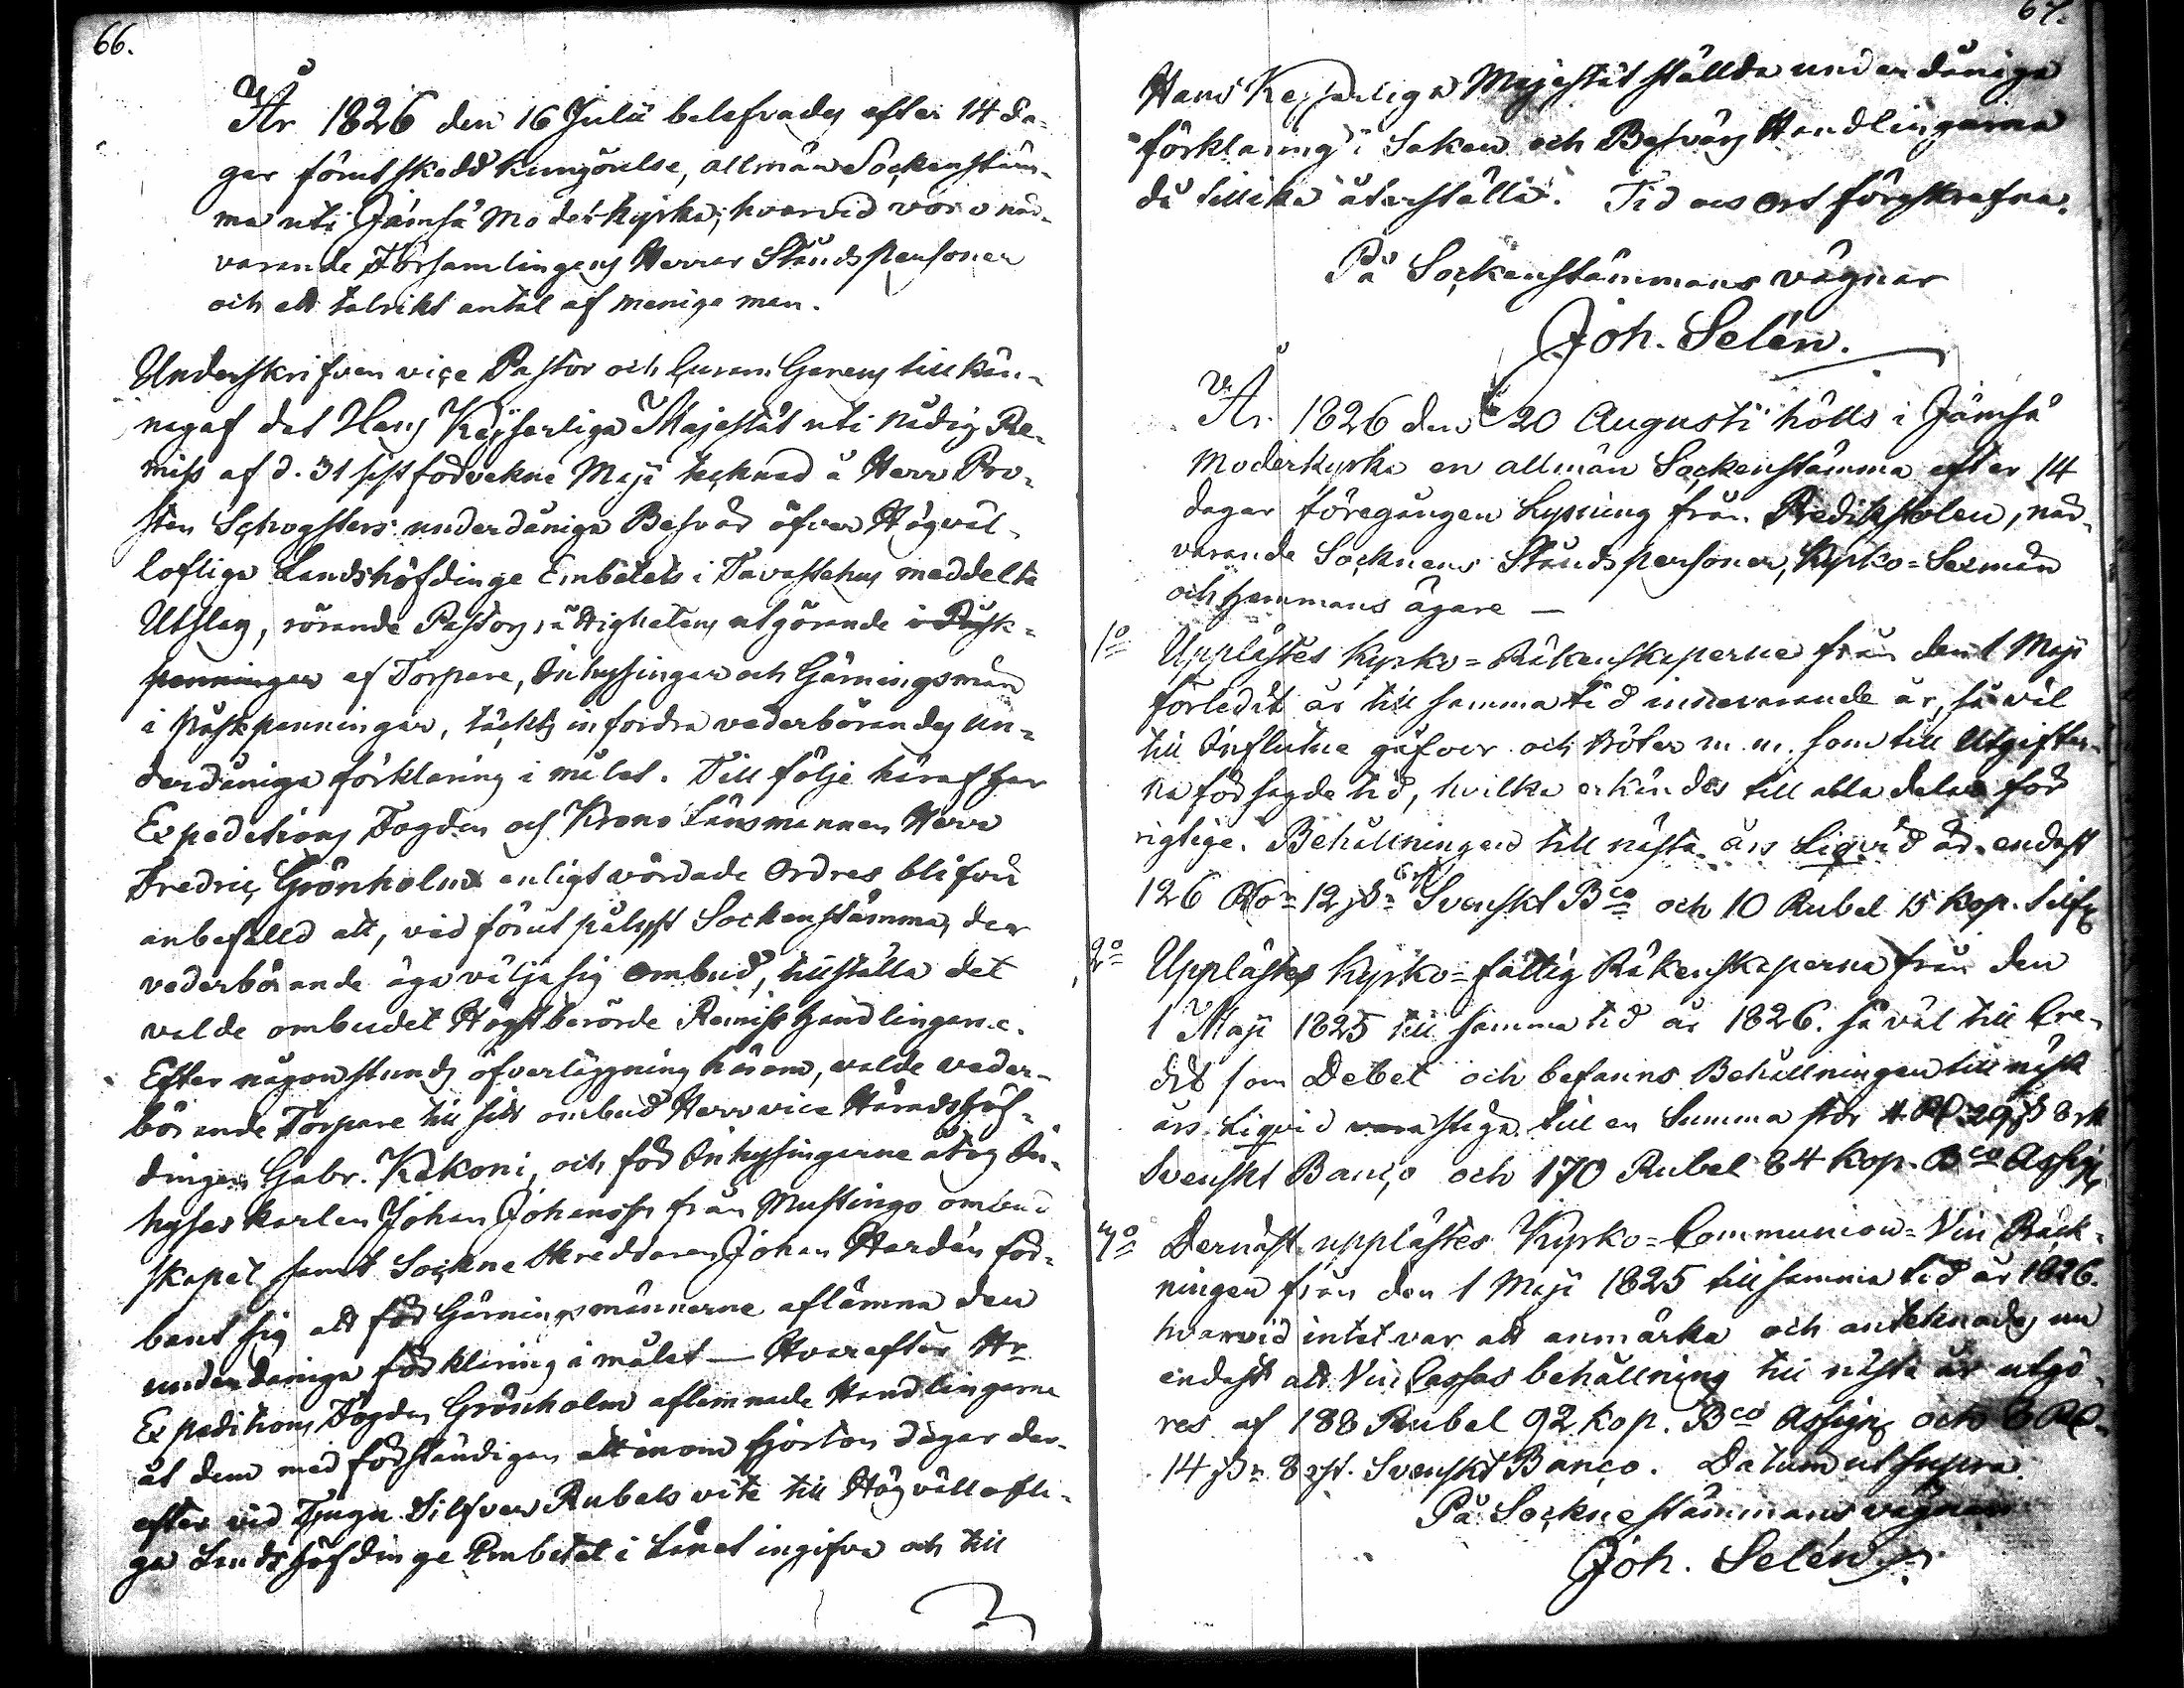 66.
År 1826 den 16 Julii belefvades efter 14 da-
gar förut skedd kungörelse, allmän Sockenstäm-
ma uti Jämsä Moderkyrka, hvarvid voro när-
varande Församlingens Herrar Ståndspersoner
och ett talrikt antal af menige man.
Underskrifven vice Pastor och Curam Gerens tillkän-
nagaf det Hans Kejserliga Majestät uti nådig Re-
miss af d. 31 sistförvekne Maji tecknad å Herr Pro-
sten Schogsters underdåniga Besvär öfver Högväl-
loflige Landshöfdinge Embetets i Tavastehus meddelta
Utslag, rörande Pastors rättighetens utgörande i Påsk-
penningar af Torpare, Inhysingar och Gärningsmän
i påskpenningar, täckts infordra vederbörandes un-
derdåniga förklaring i målet. Till följe häraf har
Expeditions Fogden och Krono Länsmannen Herr
Fredric Grönholm enligt vördade Ordres blifvit
anbefalld att, vid förut pålyst Sockenstämma, der
vederbörande äga välja sig ombud, tillställa det
valde ombudet Högstberörde Remiss Handlingarne.
Efter någon stunds öfverläggning härom, valde veder-
börande Torpare till sitt ombud Herr vice Häradshöf-
dingen Gabr. Kekoni, och för Inhysingarne åtog In-
hyses karlen Johan Johansson från Mustingo ombud
skapet samt Sockne Skräddaren Johan Hardén för-
bant sig att för Gärningsmännerne aflämna den
underdåniga förklaring i målet — Hvarefter Hr
Expeditions Fogden Grönholm aflemnade Handlingarne
åt dem med förständigan att inom fjorton dagar der-
efter vid Tjugu Silfver Rubels vite till Högvällofli-
ga Landshöfdinge Embetet i Länet ingifva och till
67.
Hans Kejserliga Majestät ställda underdåniga
förklaring i Saken och Besvärs Handlingarna
då tillika återställa. Tid och Ort förgskrefna.
På Sockenstämmans vägnar
Joh. Selén.
År 1826 den 20 Augusti hölls i Jämsä
Moderkyrka en allmän Sockenstämma efter 14
dagar föregången Lysning från Predikstolen, när-
varande Socknens Ståndspersoner, Kyrko=Sexmän
och Hemmans ägare —
1o Upplästes Kyrko=Räkenskaperne från den 1 Maji
förledit år till samma tid innevarande år, så väl
till Influtne gåfvor och böter m. m. som till Utgifter-
na för sagde tid, hvilka erkändes till alla delar för
rigtige. Behållningen till nästa års Liqvid är endast
126 Rdr 12 sk 6 rst Svenskt Bco och 10 Rubel 15 Kop. Silfr
2o Upplästes Kyrko=fattig Räkenskaperna från den
1 Maji 1825 till samma tid år 1826. så väl till Cre-
dit som Debet och befanns Behållningen till nästa
års Liqvid vara stiga till en Summa stor 4 Rd 29 sk 8 rst
Svenskt Banco och 170 Rubel 84 Kop. Bco Assign
3o Dernäst upplästes Kyrko=Communion=Vin Räck-
ningen från den 1 Maji 1825 till samma tid år 1826.
hvarvid intet var att anmärka och antecknades nu
endast att Vin Cassas behållning till nästa år utgö-
res af 188 Rubel 92 kop. Bco Assign och 8 Rd
14 sk 8 rst. Svenskt Banco. Datum ut supra.
På Socknestämmans vägnar
Joh. Selén